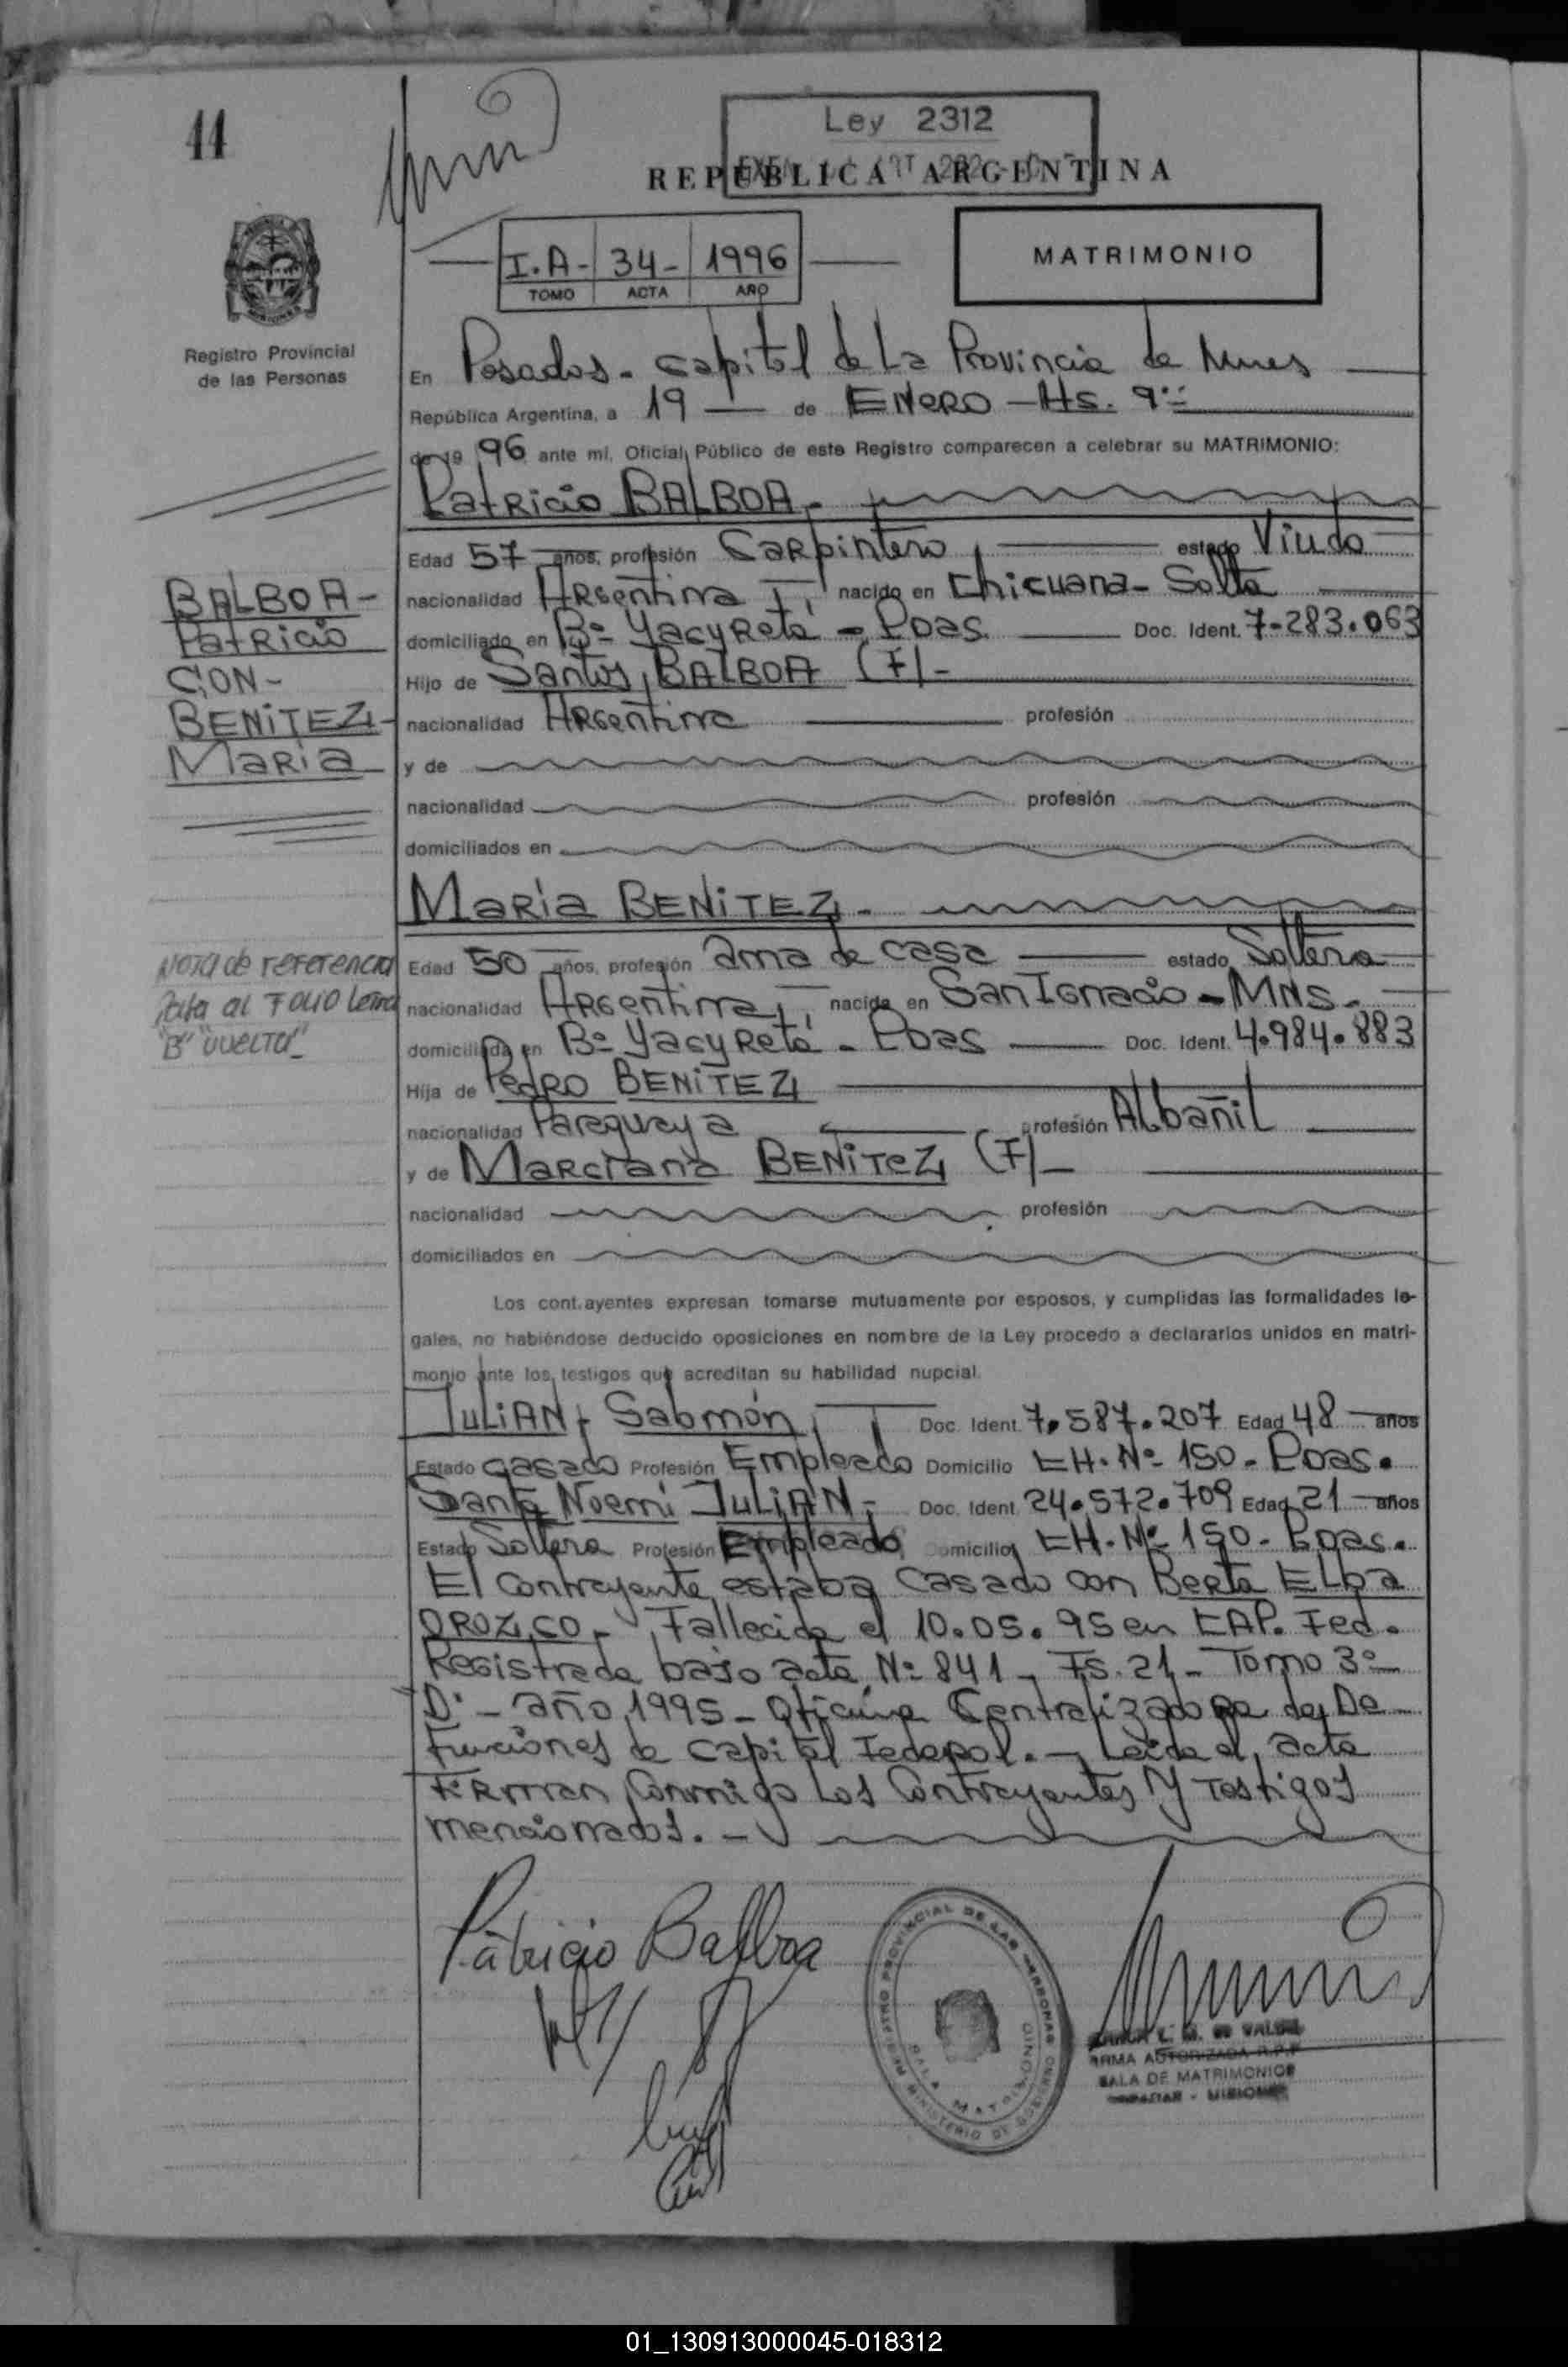 44
Ley 2312
REPUBLICA ARGENTINA
I.A- 34- 1996
TOMO ACTA AÑO
MATRIMONIO
Registro Provincial
de las Personas
En Posadas - Capital de La Provincia de Mnes
República Argentina, a 19 de ENERO - Hs. 9
de 19 96 ante mí, Oficial Público de este Registro comparecen a celebrar su MATRIMONIO:
Patricio BALBOA.-
Edad 57 años, profesión Carpintero estado Viudo
nacionalidad Argentina nacido en Chicuana - Salta
domiciliado en Bº Yacyretá - Poas. Doc. Ident. 7.283.063
Hijo de Santos BALBOA (F)-
nacionalidad Argentina profesión
y de
nacionalidad profesión
domiciliados en
BALBOA-
Patricio
CON-
BENITEZ-
Maria
Maria BENITEZ.-
Edad 50 años, profesión ama de casa estado Soltera
nacionalidad Argentina nacida en San Ignacio - MNS.-
domiciliada en Bº Yacyretá - Poas Doc. Ident. 4.984.883
Hija de Pedro BENITEZ
nacionalidad Paraguaya profesión Albañil
y de Marciana BENITEZ (F)-
nacionalidad profesión
domiciliados en
Nota de referencia
al FOLIO Letra
"B" VUELTA-
Los cont.ayentes expresan tomarse mutuamente por esposos, y cumplidas las formalidades le-
gales, no habiéndose deducido oposiciones en nombre de la Ley procedo a declararlos unidos en matri-
monio ante los testigos que acreditan su habilidad nupcial.
JULIAN, Salomón, Doc. Ident. 7.587.207 Edad 48 años
Estado Casado Profesión Empleado Domicilio CH. Nº 150 - Poas.
Santa Noemi JULIAN, Doc. Ident. 24.572.709 Edad 21 años
Estado Soltera Profesión Empleado Domicilio CH. Nº 150 - Poas.
El Contrayente estaba Casado con Berta ELba
OROZCO - Fallecida el 10.05.95 en CAP. Fed.
Registrada bajo acta Nº 841 - Fs. 21 - Tomo 3º
D. - año 1995 - Oficina Centralizadora de De
funciones de Capital Federal. - Leida el acta
Firman Conmigo Los Contrayentes Y Testigos
mencionados. -
Patricio Balboa
REGISTRO PROVINCIAL DE LAS PERSONAS
MINISTERIO DE GOBIERNO
SALA MATRIMONIO
L. M. DE
FIRMA AUTORIZADA R.P.P
SALA DE MATRIMONIOS
POSADAS - MISIONES
01_130913000045-018312